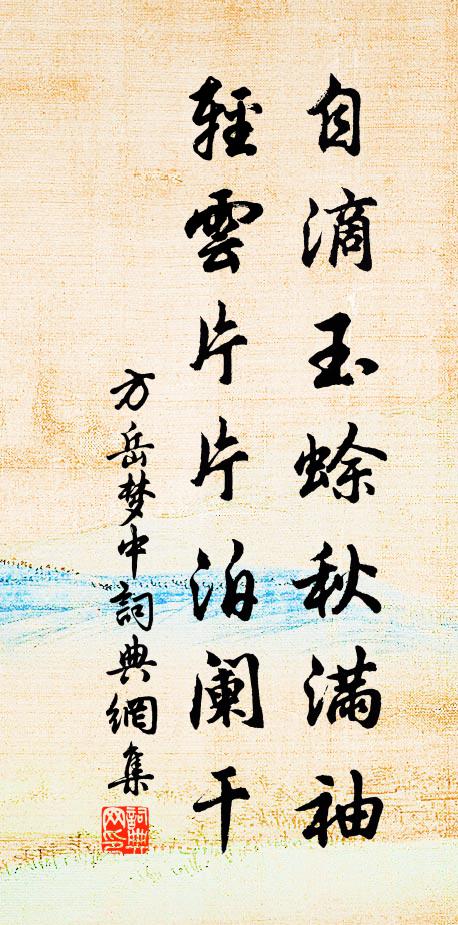 自滴玉蜍秋滿袖
輕雲片片泊闌干
方岳梦中詞典網集
詞典网印